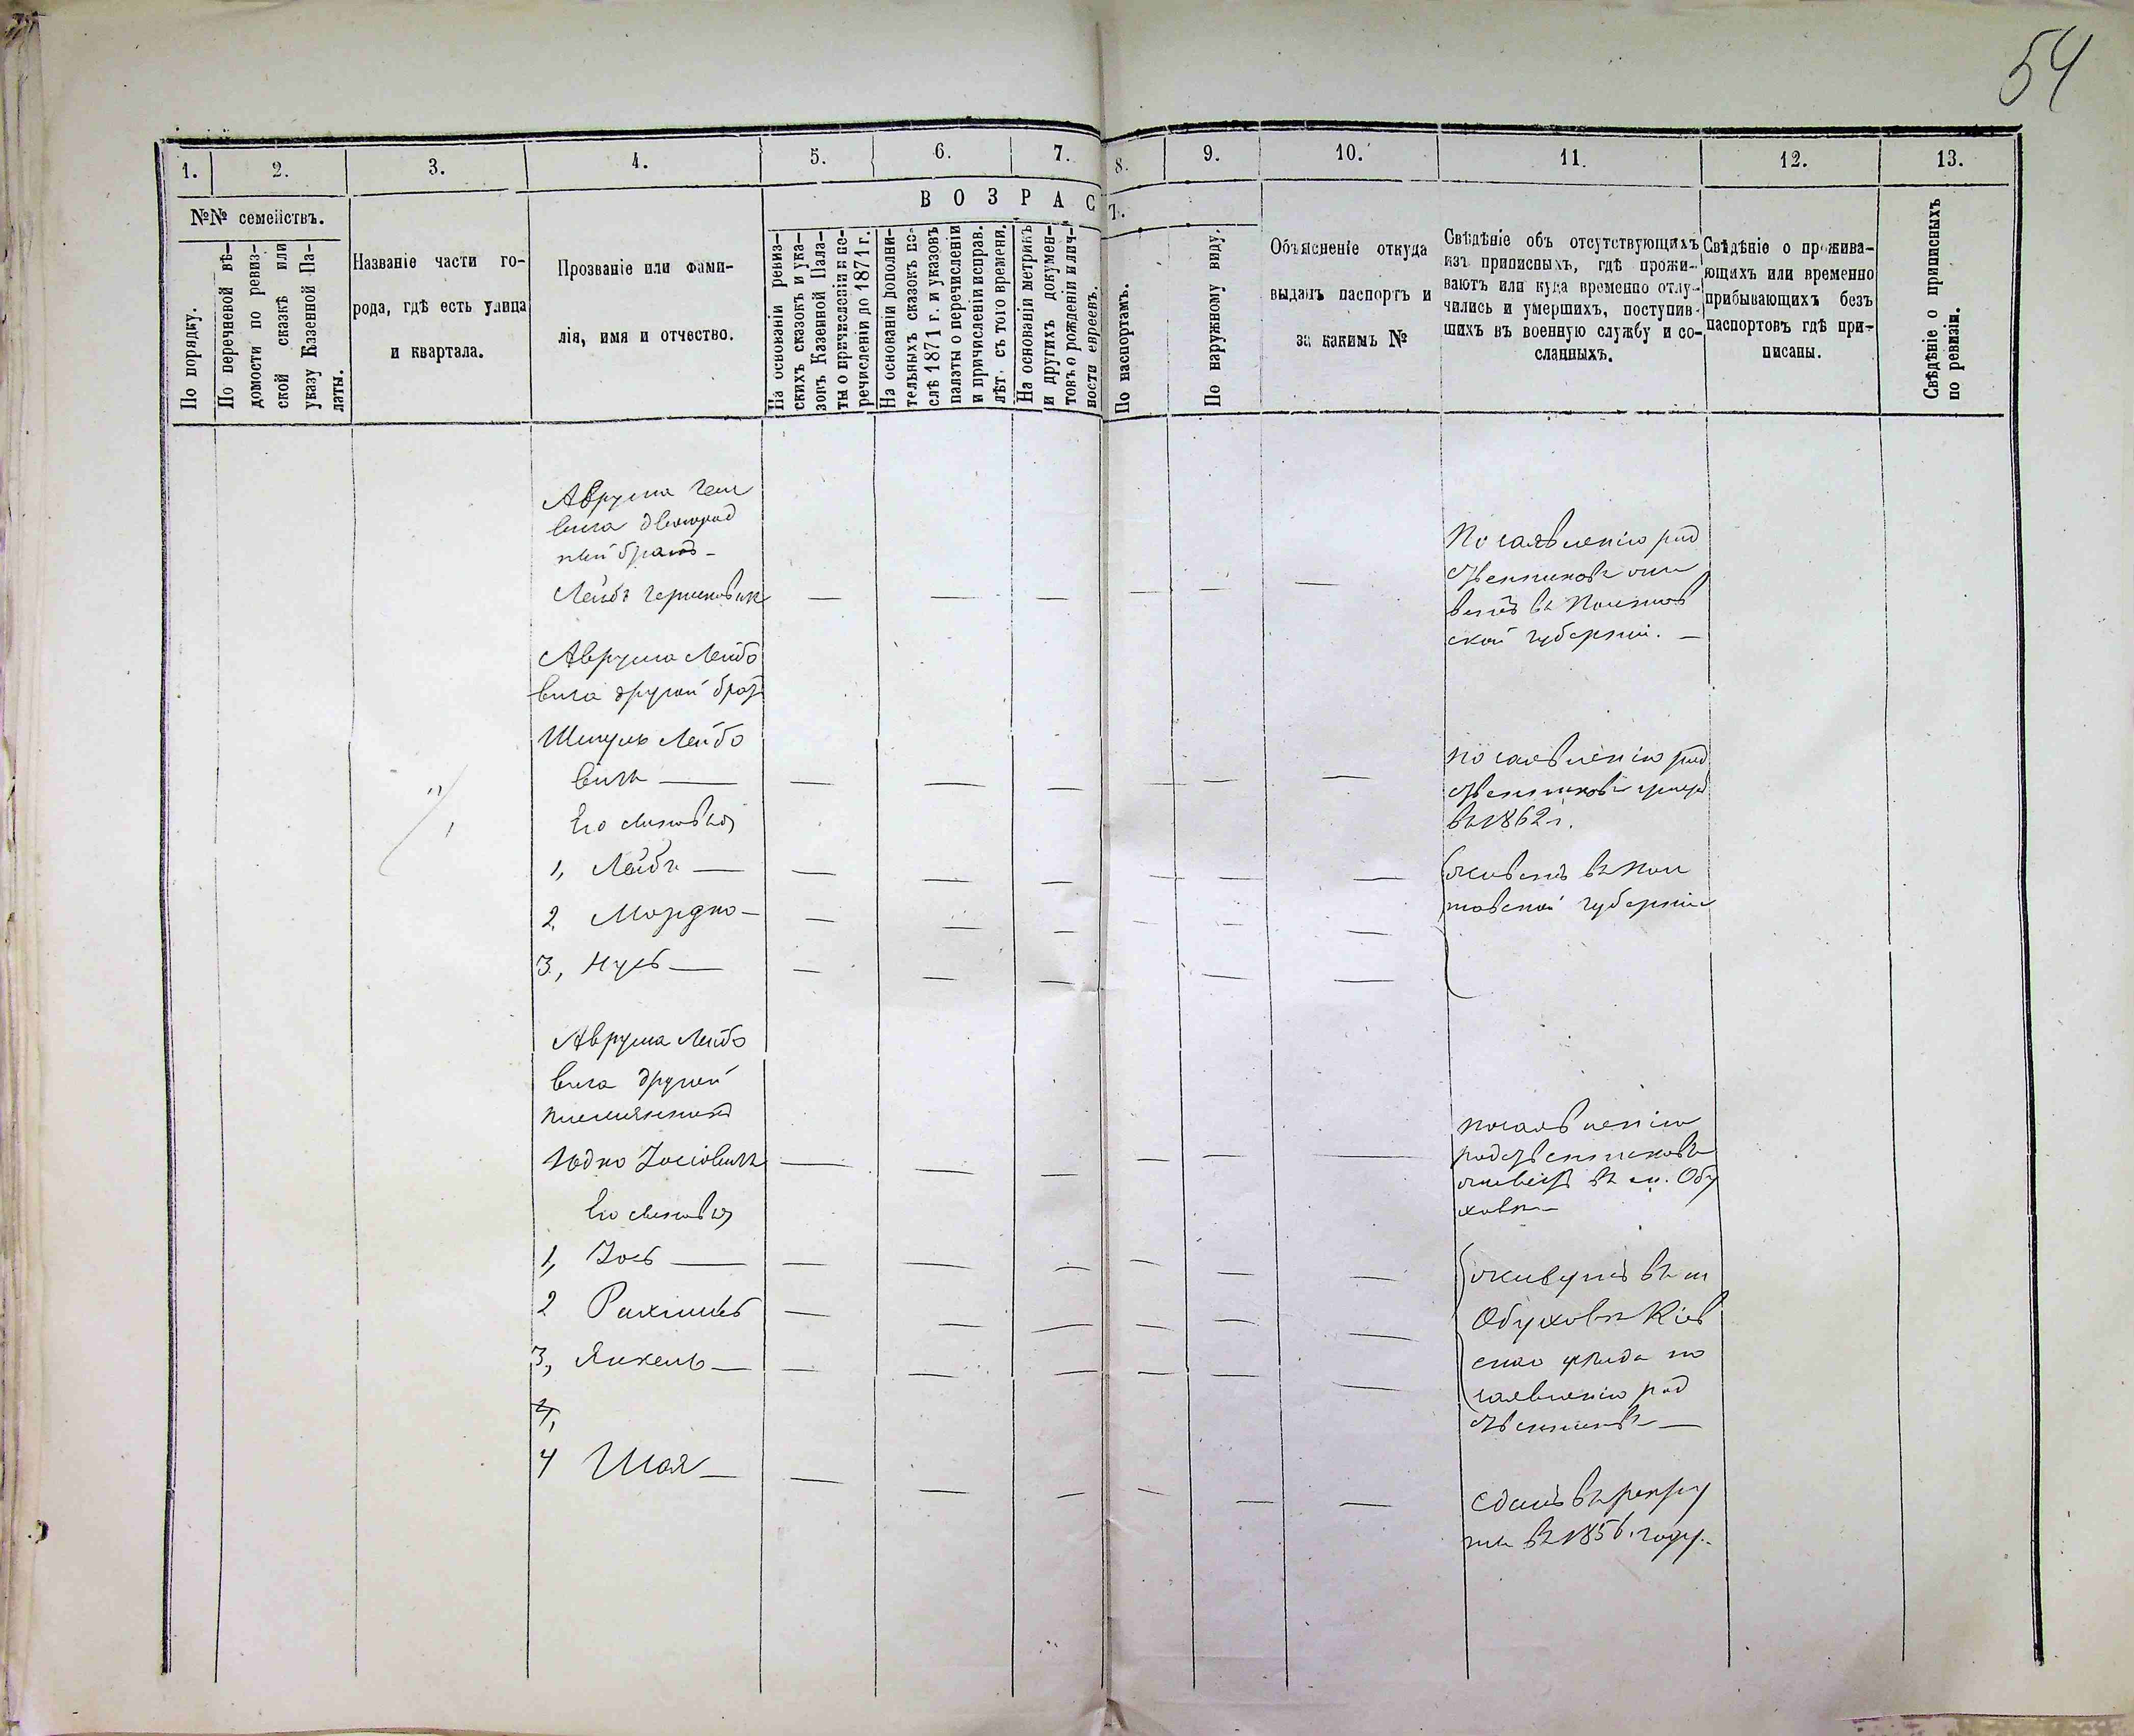 54
1.
2.
3.
4.
5.
6.
7.
8.
9.
10.
11.
12.
13.
№№ семействъ.
По порядку.
По перечневой вѣ-
домости по ревиз-
ской сказкѣ или
указу Казенной Па-
латы.
Названіе части го-
рода, гдѣ есть улица
и квартала.
Прозваніе или фами-
лія, имя и отчество.
ВОЗРАСТЪ.
На основаніи ревиз-
скихъ сказокъ и ука-
зовъ Казенной Пала-
ты о причисленіи и пе-
речисленіи до 1871 г.
На основаніи дополни-
тельныхъ сказокъ по-
слѣ 1871 г. и указовъ
палаты о перечисленіи
и причисленіи исправ.
лѣт. съ того времени.
На основаніи метрикъ
и другихъ докумен-
товъ о рожденіи и лич-
ности евреевъ.
По паспортамъ.
По наружному виду.
Объясненіе откуда
выданъ паспортъ и
за какимъ №
Свѣдѣніе объ отсутствующихъ
изъ приписныхъ, гдѣ прожи-
ваютъ или куда временно отлу-
чились и умершихъ, поступив-
шихъ въ военную службу и со-
сланныхъ.
Свѣдѣніе о прожива-
ющихъ или временно
прибывающихъ безъ
паспортовъ гдѣ при-
писаны.
Свѣдѣніе о приписныхъ
по ревизіи.
Аврума
вича двоюрод
ный братъ -
Лейбъ Гершковичъ
По заявленію род
ственниковъ жи
ветъ въ Полтав
ской губерніи. -
Аврума Лейбо
вича другой братъ
Шмуль Лейбо
вичъ
По заявленію род
ственниковъ умеръ
въ 1862 г.
Его сыновья
1, Лейбъ
2, Мордко -
3, Нусъ
живетъ въ Пол
тавской губерніи
Аврума Лейбо
вича другой
племянникъ
Юдко Іосіовичъ
по заявленію
родственниковъ
живетъ въ м. Обу
ховкѣ
Его сыновья
1, Іосъ
2 Рахмиль
3, Янкель -
4,
4 Шая -
живутъ въ м
Обуховкѣ Кіев
скаго уѣзда по
заявленію род
ственниковъ
Сданъ въ рекру
ты въ 1856. году.